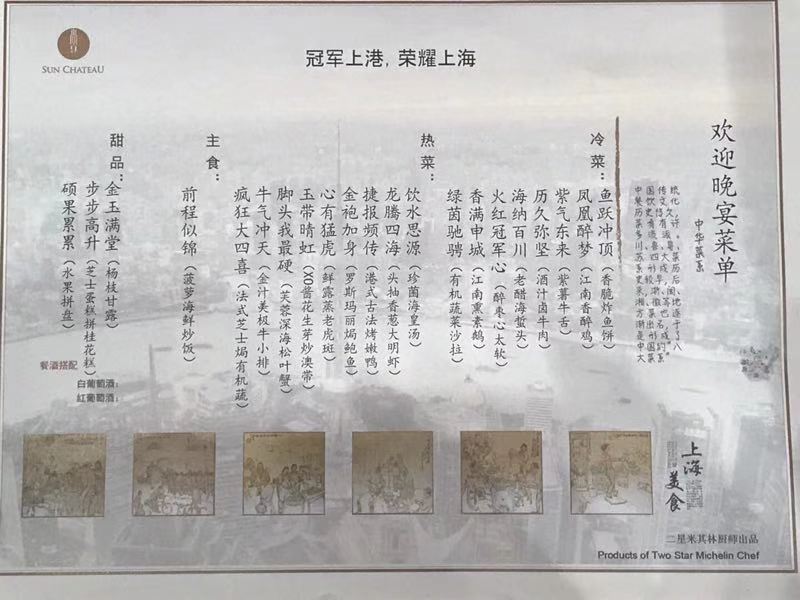 SUN CHATEAU
冠军上港, 荣耀上海
欢迎晚宴菜单
中华菜系
冷菜：
鱼跃冲顶（香脆炸鱼饼）
凤凰醉梦（江南香醉鸡）
紫气东来（紫薯牛舌）
历久弥坚（酒汁卤牛肉）
海纳百川（老醋海蜇头）
火红冠军心（醉枣心太软）
香满申城（江南熏素鹅）
绿茵驰骋（有机蔬菜沙拉）
热菜：
饮水思源（珍菌海皇汤）
龙腾四海（头抽香葱大明虾）
捷报频传（港式古法烤嫩鸭）
金袍加身（罗斯玛丽焗鲍鱼）
心有猛虎（鲜露蒸老虎斑）
玉带晴虹（XO酱花生芽炒澳带）
脚头我最硬（芙蓉深海松叶蟹）
牛气冲天（金汁美极牛小排）
疯狂大四喜（法式芝士焗有机蔬）
主食：
前程似锦（菠萝海鲜炒饭）
甜品：
金玉满堂（杨枝甘露）
步步高升（芝士蛋糕拼桂花糕）
硕果累累（水果拼盘）
餐酒搭配
白葡萄酒：
红葡萄酒：
上海
美食
二星米其林厨师出品
Products of Two Star Michelin Chef